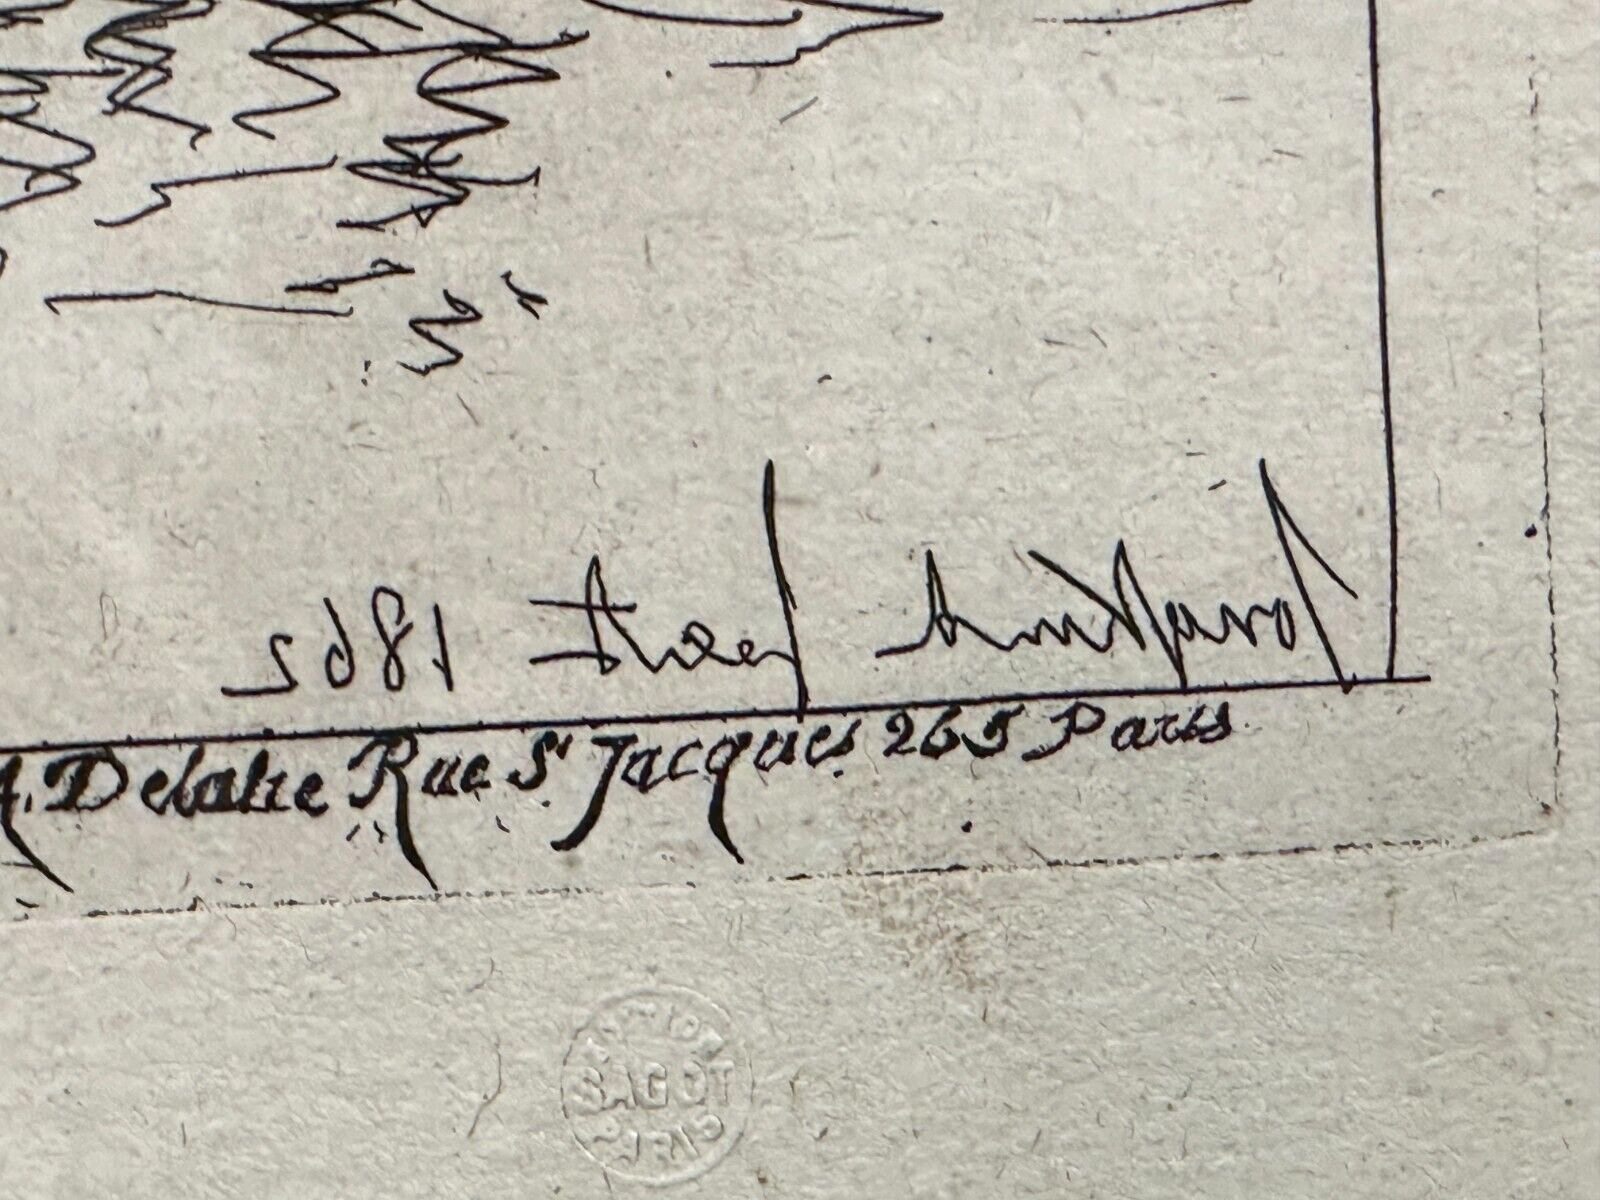 Jongkind fecit 1862
A. Delatre Rue St Jacques 265 Paris
SAGOT
PARIS